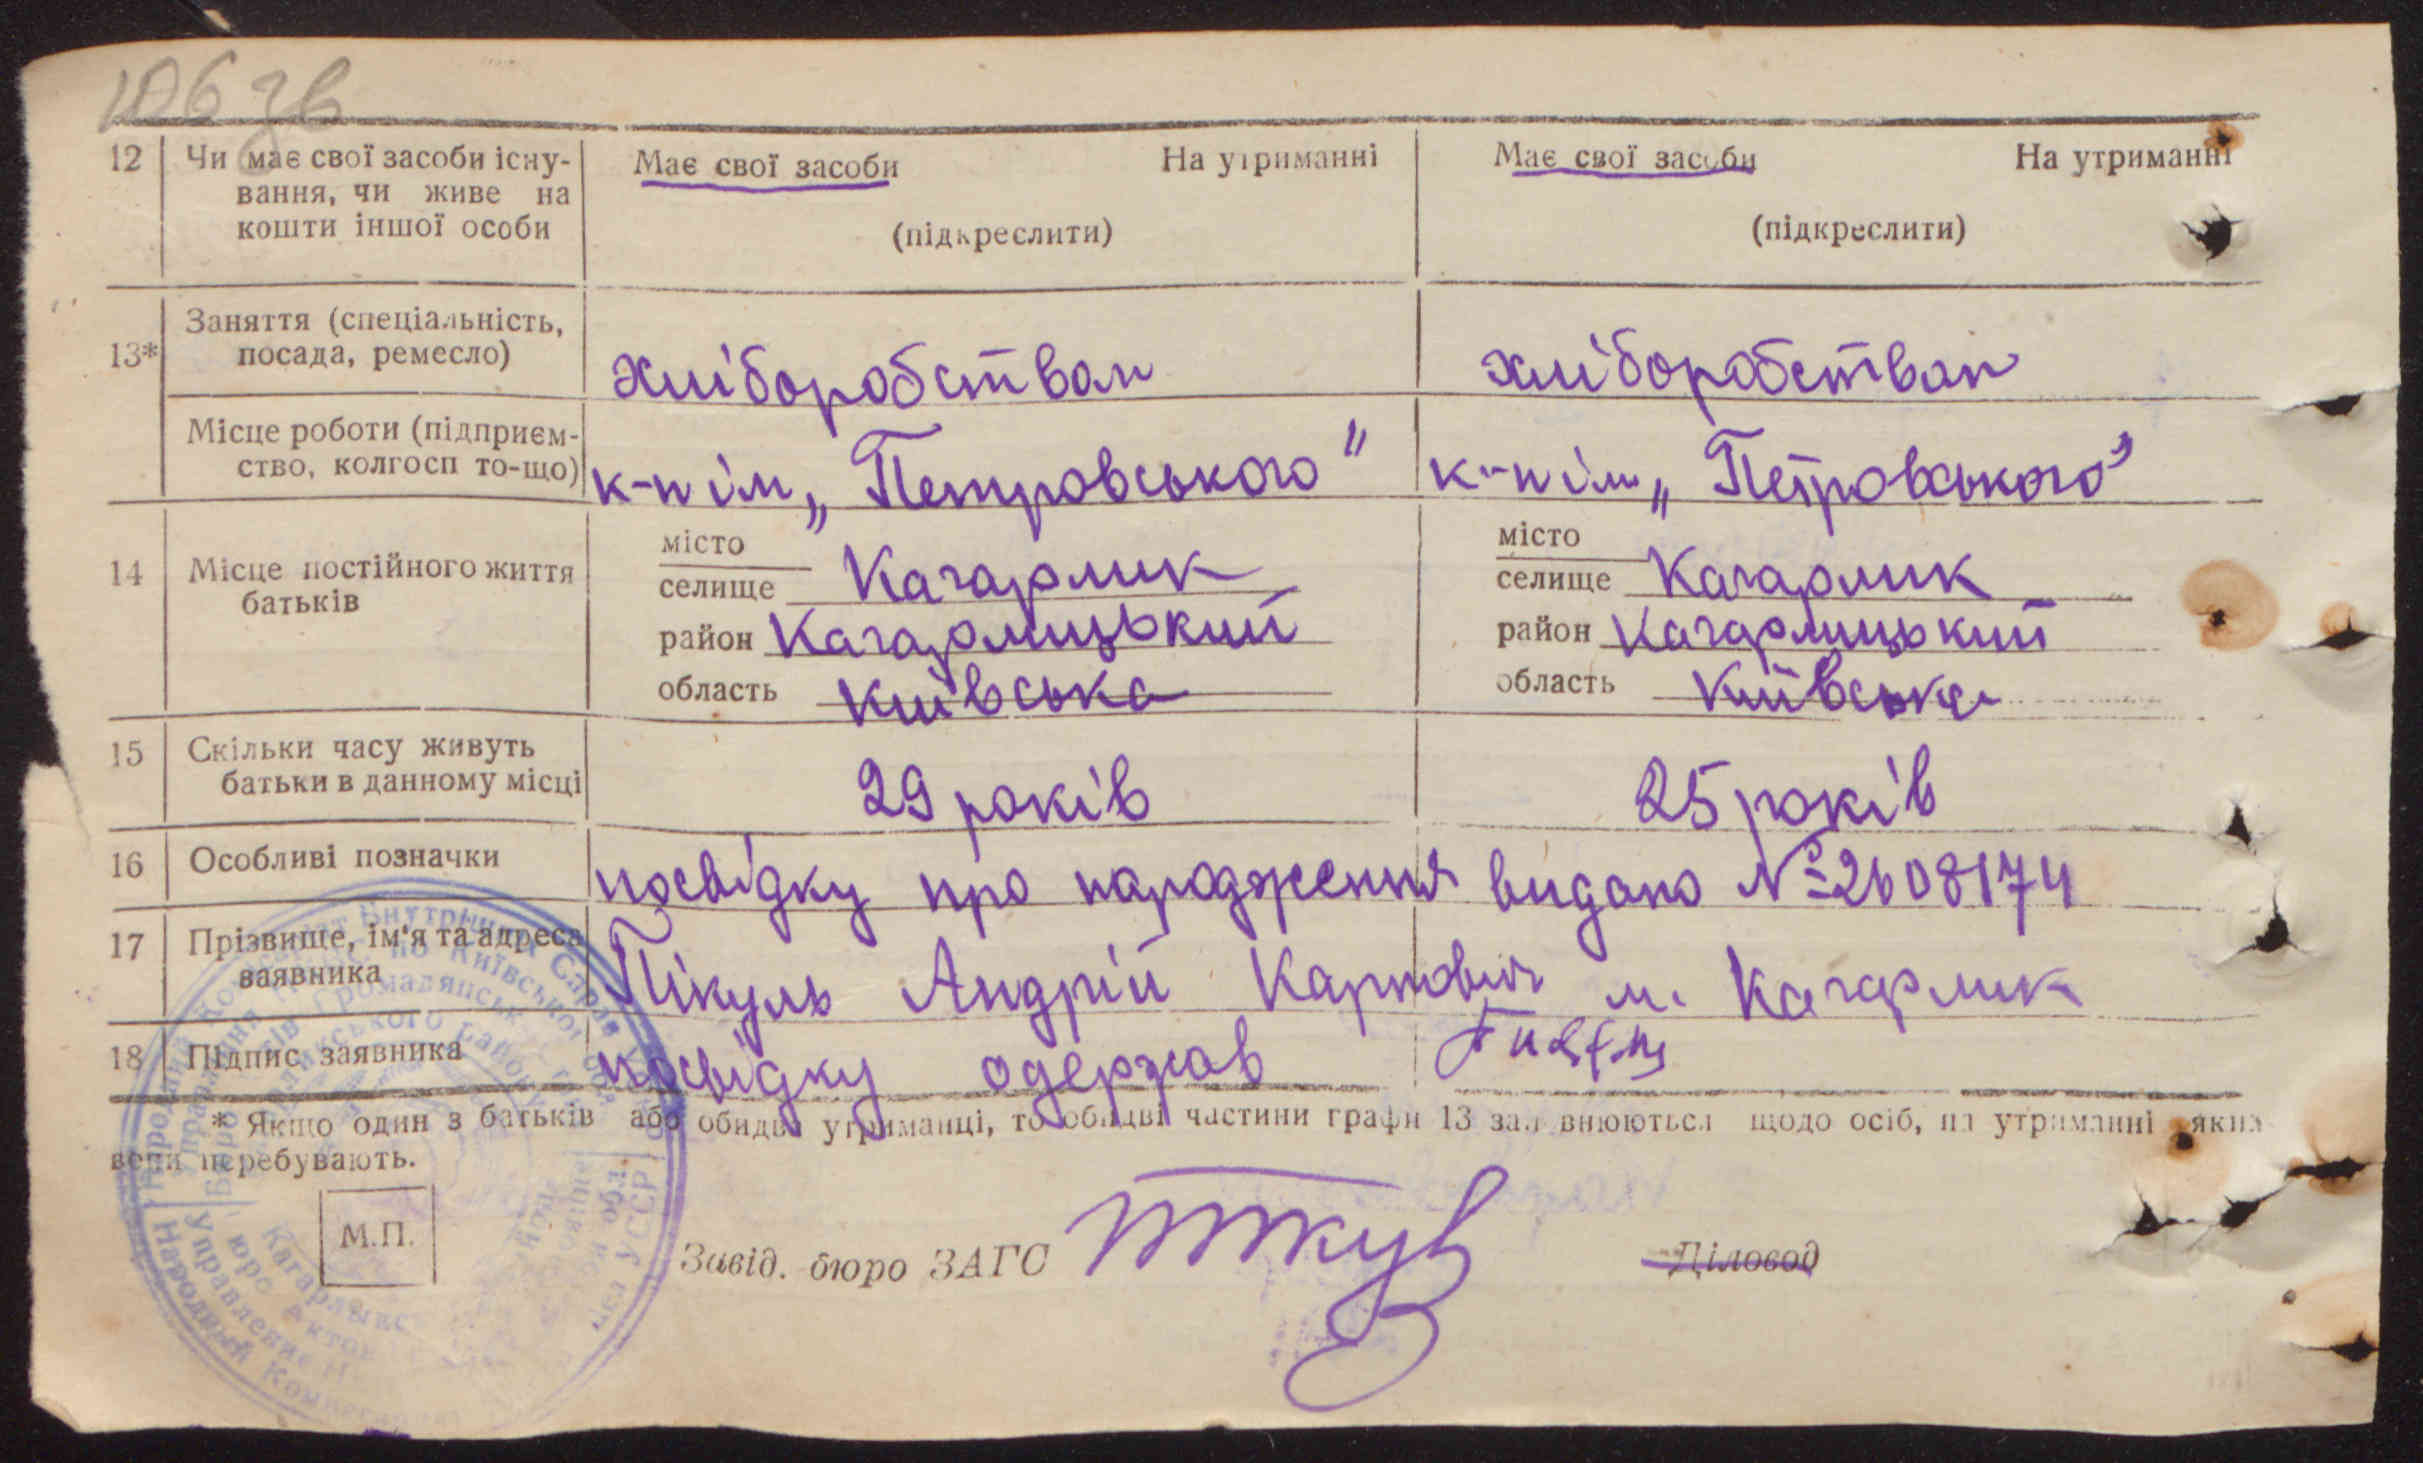 106 зв
12 Чи має свої засоби існу- Має свої засоби На утриманні Має свої засоби На утриманні
вання, чи живе на
кошти іншої особи (підкреслити) (підкреслити)
Заняття (спеціальність,
13* посада, ремесло) хліборобством хліборобством
Місце роботи (підприєм-
ство, колгосп то-що) к-п ім „Петровського" к-п ім „Петровського"
місто місто
14 Місце постійного життя селище Кагарлик селище Кагарлик
батьків
район Кагарлицький район Кагарлицький
область Київська область Київська
15 Скільки часу живуть
батьки в данному місці 29 років 25 років
16 Особливі позначки посвідку про народження видано № 2608174
17 Прізвище, ім'я та адреса
заявника Пікуль Андрій Карпович м. Кагарлик
18 Підпис заявника посвідку одержав
* Якщо один з батьків або обидва утриманці, то обидві частини графи 13 заповнюються щодо осіб, на утриманні яких
вони перебувають.
М.П.
Завід. бюро ЗАГС Діловод